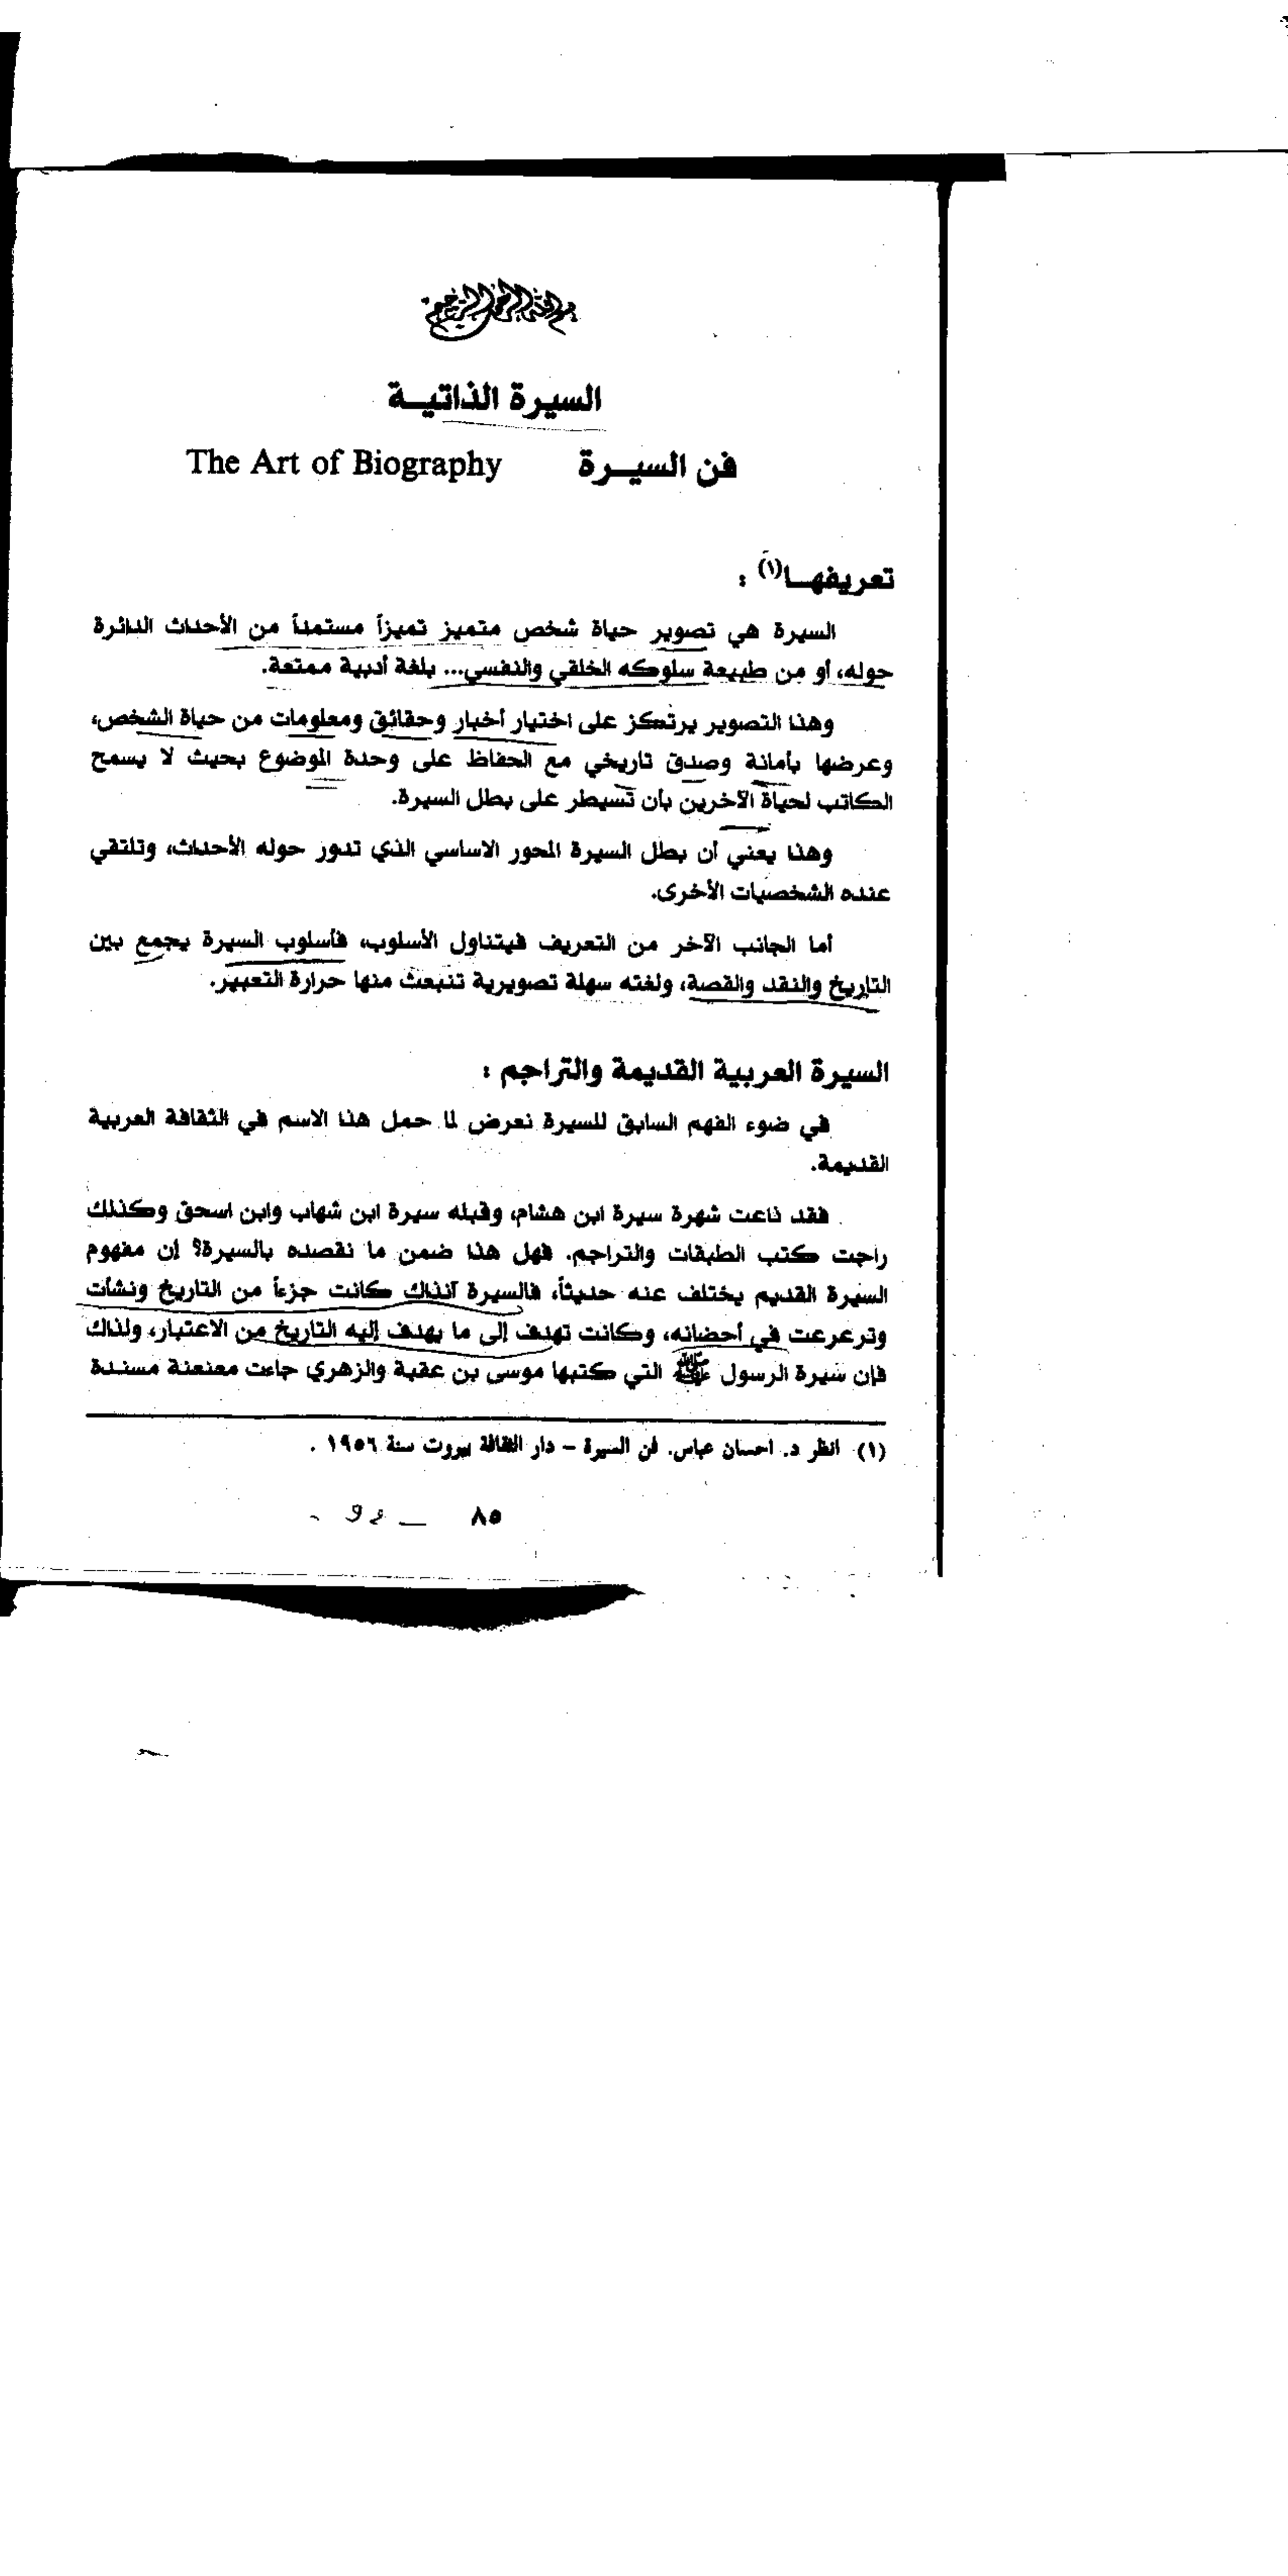 بسم الله الرحمن الرحيم
السيرة الذاتيـة
فن السيـرة The Art of Biography
تعريفهـا(١) :
السيرة هي تصوير حياة شخص متميز تميزاً مستمداً من الأحداث الدائرة
حوله، أو من طبيعة سلوكه الخلقي والنفسي... بلغة أدبية ممتعة.
وهذا التصوير يرتكز على اختيار أخبار وحقائق ومعلومات من حياة الشخص،
وعرضها بأمانة وصدق تاريخي مع الحفاظ على وحدة الموضوع بحيث لا يسمح
الكاتب لحياة الآخرين بأن تسيطر على بطل السيرة.
وهذا يعني أن بطل السيرة المحور الاساسي الذي تدور حوله الأحداث، وتلتقي
عنده الشخصيات الأخرى.
أما الجانب الآخر من التعريف فيتناول الأسلوب، فأسلوب السيرة يجمع بين
التاريخ والنقد والقصة، ولغته سهلة تصويرية تنبعث منها حرارة التعبير.
السيرة العربية القديمة والتراجم :
في ضوء الفهم السابق للسيرة نعرض لما حمل هذا الاسم في الثقافة العربية
القديمة.
فقد ذاعت شهرة سيرة ابن هشام، وقبله سيرة ابن شهاب وابن اسحق وكذلك
راجت كتب الطبقات والتراجم. فهل هذا ضمن ما نقصده بالسيرة؟ إن مفهوم
السيرة القديم يختلف عنه حديثاً، فالسيرة آنذاك كانت جزءاً من التاريخ ونشأت
وترعرعت في أحضانه، وكانت تهدف إلى ما يهدف إليه التاريخ من الاعتبار، ولذاك
فإن سيرة الرسول ﷺ التي كتبها موسى بن عقبة والزهري جاءت معنعنة مسندة
(١) انظر د. احسان عباس. فن السيرة - دار الثقافة بيروت سنة ١٩٥٦ .
٨٥ —